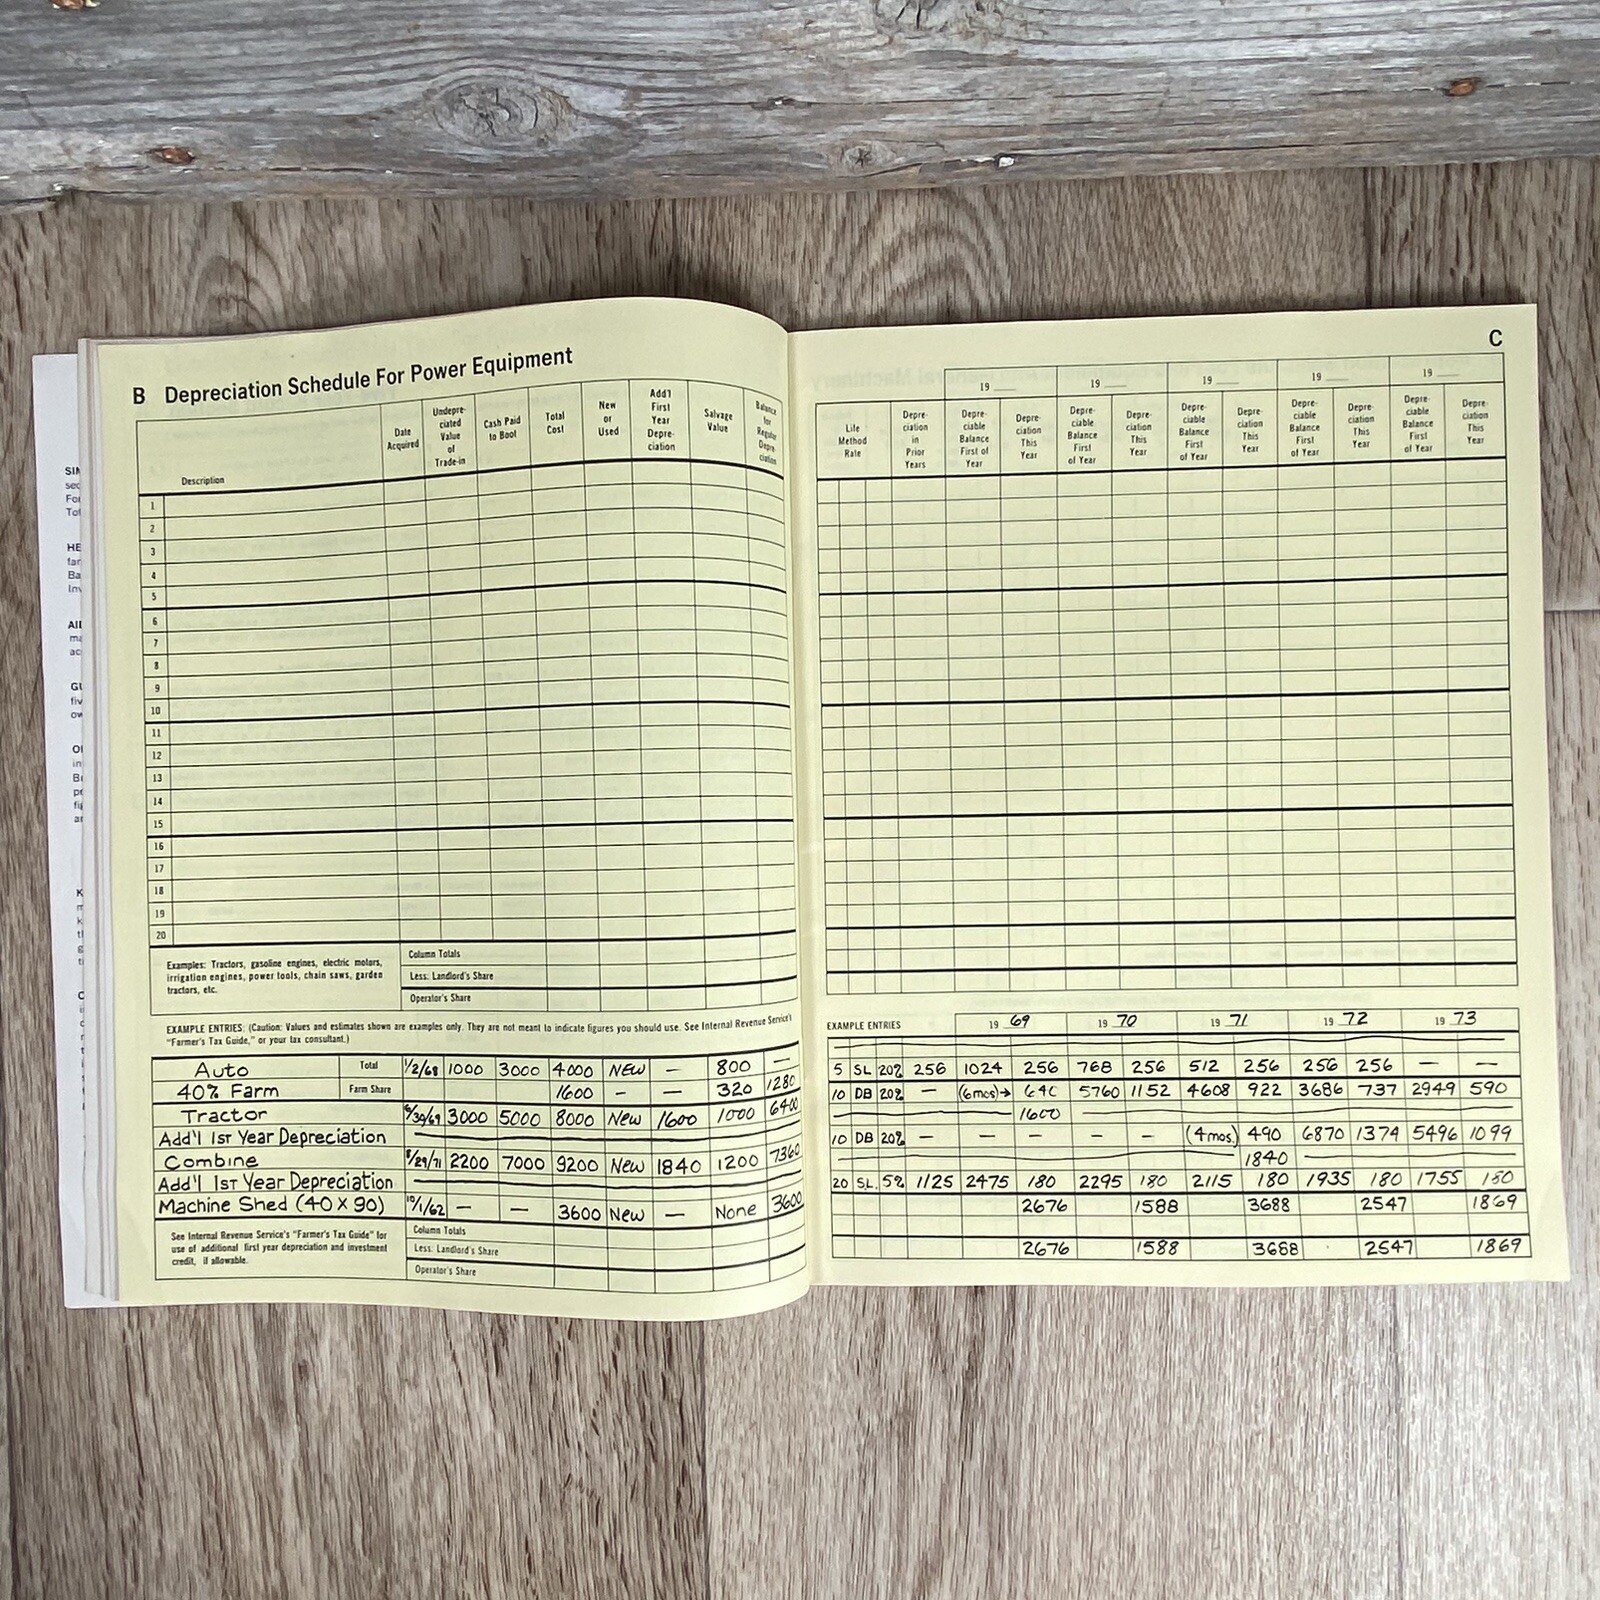 B Depreciation Schedule For Power Equipment
Description
Date Acquired
Undepre-ciated Value of Trade-in
Cash Paid to Boot
Total Cost
New or Used
Add'l First Year Depre-ciation
Salvage Value
Balance for Regular Depre-ciation
1
2
3
4
5
6
7
8
9
10
11
12
13
14
15
16
17
18
19
20
Examples: Tractors, gasoline engines, electric motors,
irrigation engines, power tools, chain saws, garden
tractors, etc.
Column Totals
Less: Landlord's Share
Operator's Share
EXAMPLE ENTRIES: (Caution: Values and estimates shown are examples only. They are not meant to indicate figures you should use. See Internal Revenue Service's
"Farmer's Tax Guide," or your tax consultant.)
Auto Total 1/2/68 1000 3000 4000 NEW — 800 —
40% Farm Farm Share 1600 - — 320 1280
Tractor 6/30/69 3000 5000 8000 New 1600 1000 6400
Add'l 1st Year Depreciation
Combine 8/29/71 2200 7000 9200 New 1840 1200 7360
Add'l 1st Year Depreciation
Machine Shed (40 x 90) 10/1/62 — — 3600 New — None 3600
See Internal Revenue Service's "Farmer's Tax Guide" for
use of additional first year depreciation and investment
credit, if allowable.
Column Totals
Less: Landlord's Share
Operator's Share
C
19 19 19 19 19
Life Method Rate
Depre-ciation in Prior Years
Depre-ciable Balance First of Year
Depre-ciation This Year
Depre-ciable Balance First of Year
Depre-ciation This Year
Depre-ciable Balance First of Year
Depre-ciation This Year
Depre-ciable Balance First of Year
Depre-ciation This Year
Depre-ciable Balance First of Year
Depre-ciation This Year
EXAMPLE ENTRIES 19 69 19 70 19 71 19 72 19 73
5 SL 20% 256 1024 256 768 256 512 256 256 256 — —
10 DB 20% — (6 mos)→ 640 5760 1152 4608 922 3686 737 2949 590
1600
10 DB 20% — — — — — (4 mos.) 490 6870 1374 5496 1099
1840
20 S.L. 5% 1125 2475 180 2295 180 2115 180 1935 180 1755 180
2676 1588 3688 2547 1869
2676 1588 3688 2547 1869